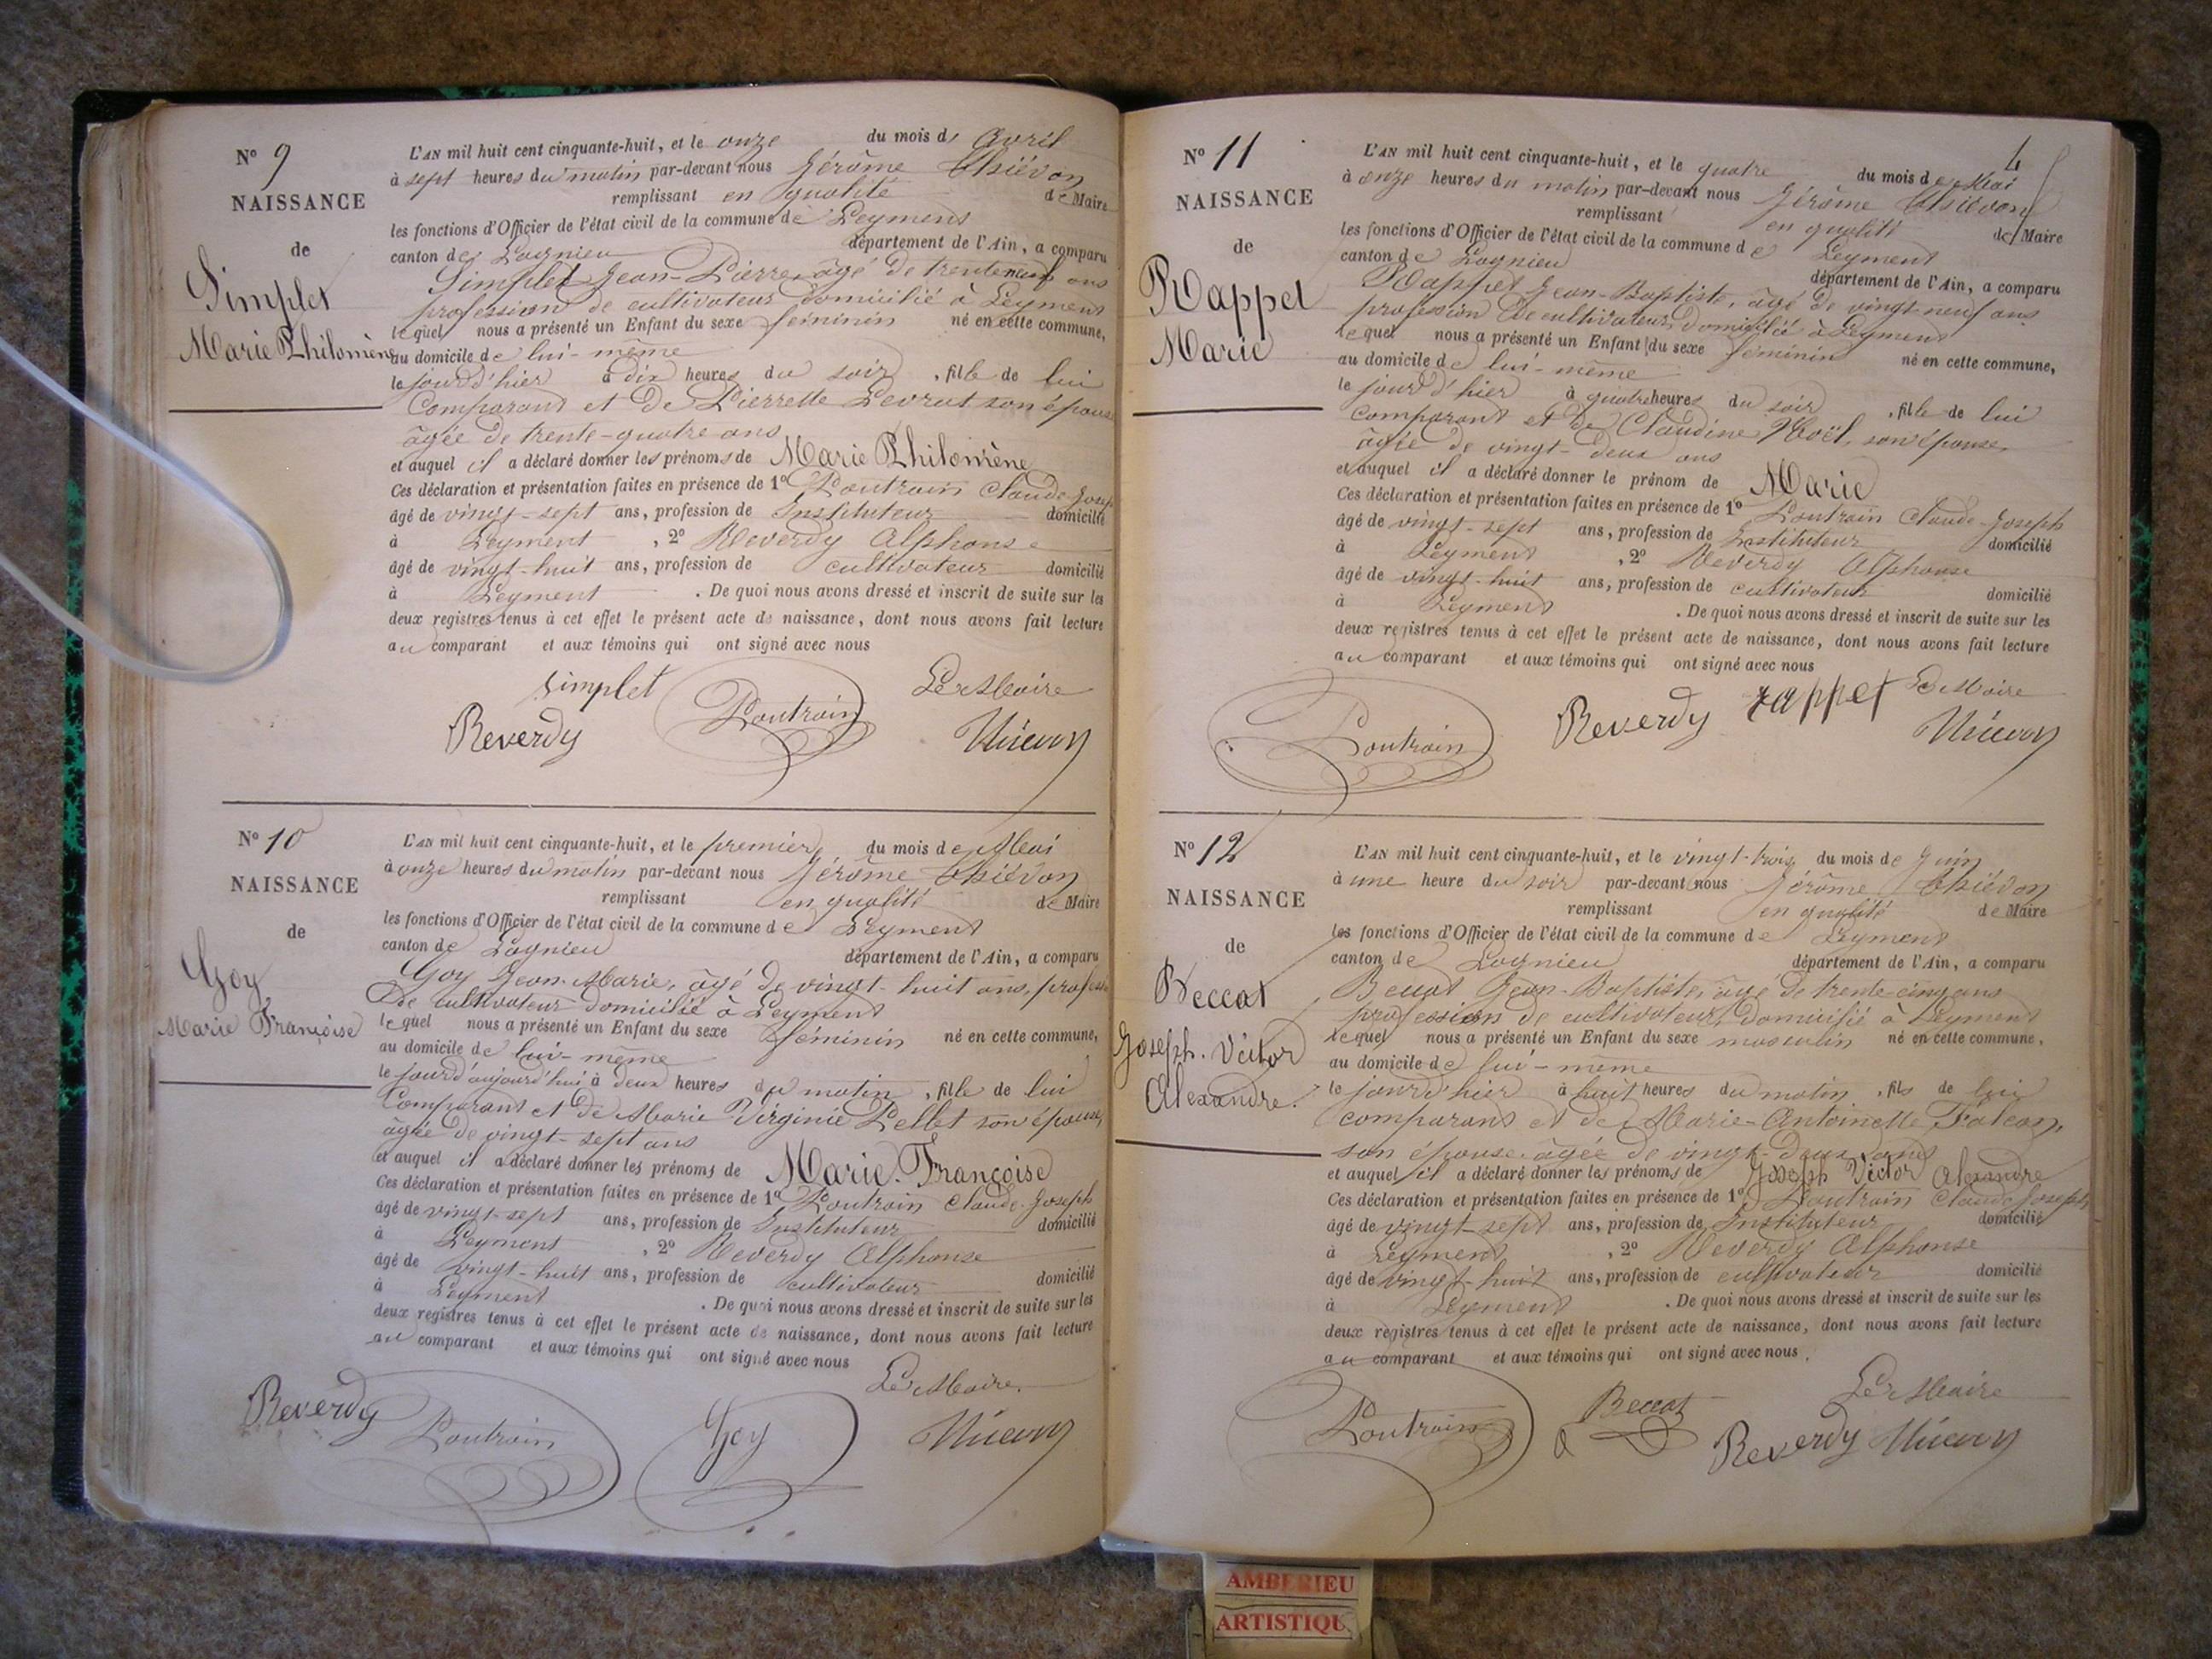 N° 9
NAISSANCE
de
Simplet
Marie Philomène
L'AN mil huit cent cinquante-huit, et le onze du mois d' Avril
à sept heures du matin par-devant nous Jérôme Thiévon
remplissant en qualité de Maire
les fonctions d'Officier de l'état civil de la commune de Leyment
canton de Lagnieu département de l'Ain, a comparu
Simplet Jean-Pierre, âgé de trente neuf ans
profession de cultivateur domicilié à Leyment
lequel nous a présenté un Enfant du sexe féminin né en cette commune,
au domicile de lui-même
le jour d'hier à dix heures du soir, fille de lui
Comparant et de Pierrette Levrat son épouse
âgée de trente-quatre ans
et auquel il a déclaré donner les prénoms de Marie Philomène
Ces déclaration et présentation faites en présence de 1° Poutrain Claude-Joseph
âgé de vingt-sept ans, profession de Instituteur domicilié
à Leyment, 2° Reverdy Alphonse
âgé de vingt-huit ans, profession de cultivateur domicilié
à Leyment. De quoi nous avons dressé et inscrit de suite sur les
deux registres tenus à cet effet le présent acte de naissance, dont nous avons fait lecture
au comparant et aux témoins qui ont signé avec nous
simplet Le Maire
Reverdy Poutrain Thiévon
N° 10
NAISSANCE
de
Goy
Marie Françoise
L'AN mil huit cent cinquante-huit, et le premier du mois de Mai
à onze heures du matin par-devant nous Jérôme Thiévon
remplissant en qualité de Maire
les fonctions d'Officier de l'état civil de la commune de Leyment
canton de Lagnieu département de l'Ain, a comparu
Goy Jean-Marie, âgé de vingt-huit ans, profession
de cultivateur domicilié à Leyment
lequel nous a présenté un Enfant du sexe féminin né en cette commune,
au domicile de lui-même
le jour d'aujourd'hui à deux heures du matin, fille de lui
Comparant et de Marie Virginie Pellet son épouse,
âgée de vingt-sept ans
et auquel il a déclaré donner les prénoms de Marie-Françoise
Ces déclaration et présentation faites en présence de 1° Poutrain Claude-Joseph
âgé de vingt-sept ans, profession de Instituteur domicilié
à Leyment, 2° Reverdy Alphonse
âgé de vingt-huit ans, profession de cultivateur domicilié
à Leyment. De quoi nous avons dressé et inscrit de suite sur les
deux registres tenus à cet effet le présent acte de naissance, dont nous avons fait lecture
au comparant et aux témoins qui ont signé avec nous
Le Maire.
Reverdy Poutrain Goy Thiévon
4
N° 11
NAISSANCE
de
Rappet
Marie
L'AN mil huit cent cinquante-huit, et le quatre du mois de Mai
à onze heures du matin par-devant nous Jérôme Thiévon
remplissant en qualité de Maire
les fonctions d'Officier de l'état civil de la commune de Leyment
canton de Lagnieu département de l'Ain, a comparu
Rappet Jean-Baptiste, âgé de vingt neuf ans
profession de cultivateur, domicilié à Leyment
lequel nous a présenté un Enfant du sexe féminin né en cette commune,
au domicile de lui-même
le jour d'hier à quatre heures du soir, fille de lui
comparant et de Claudine Noël, son épouse,
âgée de vingt-deux ans
et auquel il a déclaré donner le prénom de Marie
Ces déclaration et présentation faites en présence de 1° Poutrain Claude-Joseph
âgé de vingt-sept ans, profession de Instituteur domicilié
à Leyment, 2° Reverdy Alphonse
âgé de vingt-huit ans, profession de cultivateur domicilié
à Leyment. De quoi nous avons dressé et inscrit de suite sur les
deux registres tenus à cet effet le présent acte de naissance, dont nous avons fait lecture
au comparant et aux témoins qui ont signé avec nous
Poutrain Reverdy rappet Le Maire
Thiévon
N° 12
NAISSANCE
de
Beccat
Joseph. Victor
Alexandre.
L'AN mil huit cent cinquante-huit, et le vingt-trois du mois de Juin
à une heure du soir par-devant nous Jérôme Thiévon
remplissant en qualité de Maire
les fonctions d'Officier de l'état civil de la commune de Leyment
canton de Lagnieu département de l'Ain, a comparu
Beccat Jean-Baptiste, âgé de trente-cinq ans
profession de cultivateur, domicilié à Leyment
lequel nous a présenté un Enfant du sexe masculin né en cette commune,
au domicile de lui-même
le jour d'hier à huit heures du matin, fils de lui
comparant et de Marie-Antoinette Falcon,
son épouse âgée de vingt-deux ans
et auquel il a déclaré donner les prénoms de Joseph Victor Alexandre
Ces déclaration et présentation faites en présence de 1° Poutrain Claude Joseph,
âgé de vingt-sept ans, profession de Instituteur domicilié
à Leyment, 2° Reverdy Alphonse
âgé de vingt-huit ans, profession de cultivateur domicilié
à Leyment. De quoi nous avons dressé et inscrit de suite sur les
deux registres tenus à cet effet le présent acte de naissance, dont nous avons fait lecture
au comparant et aux témoins qui ont signé avec nous.
Le Maire
Poutrain Beccat Reverdy Thiévon
AMBERIEU
ARTISTIQU